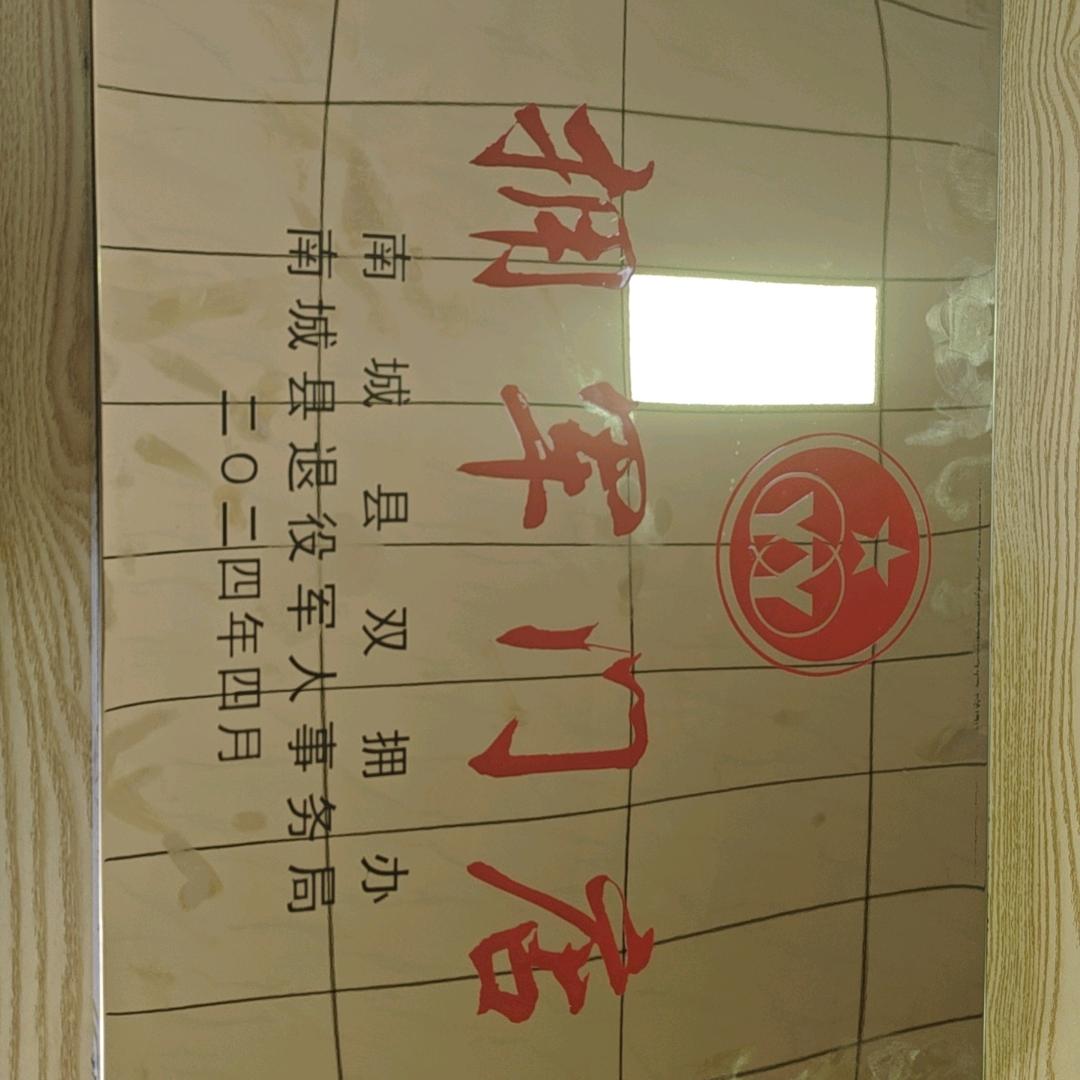 拥军门店
南城县双拥办
南城县退役军人事务局
二〇二四年四月